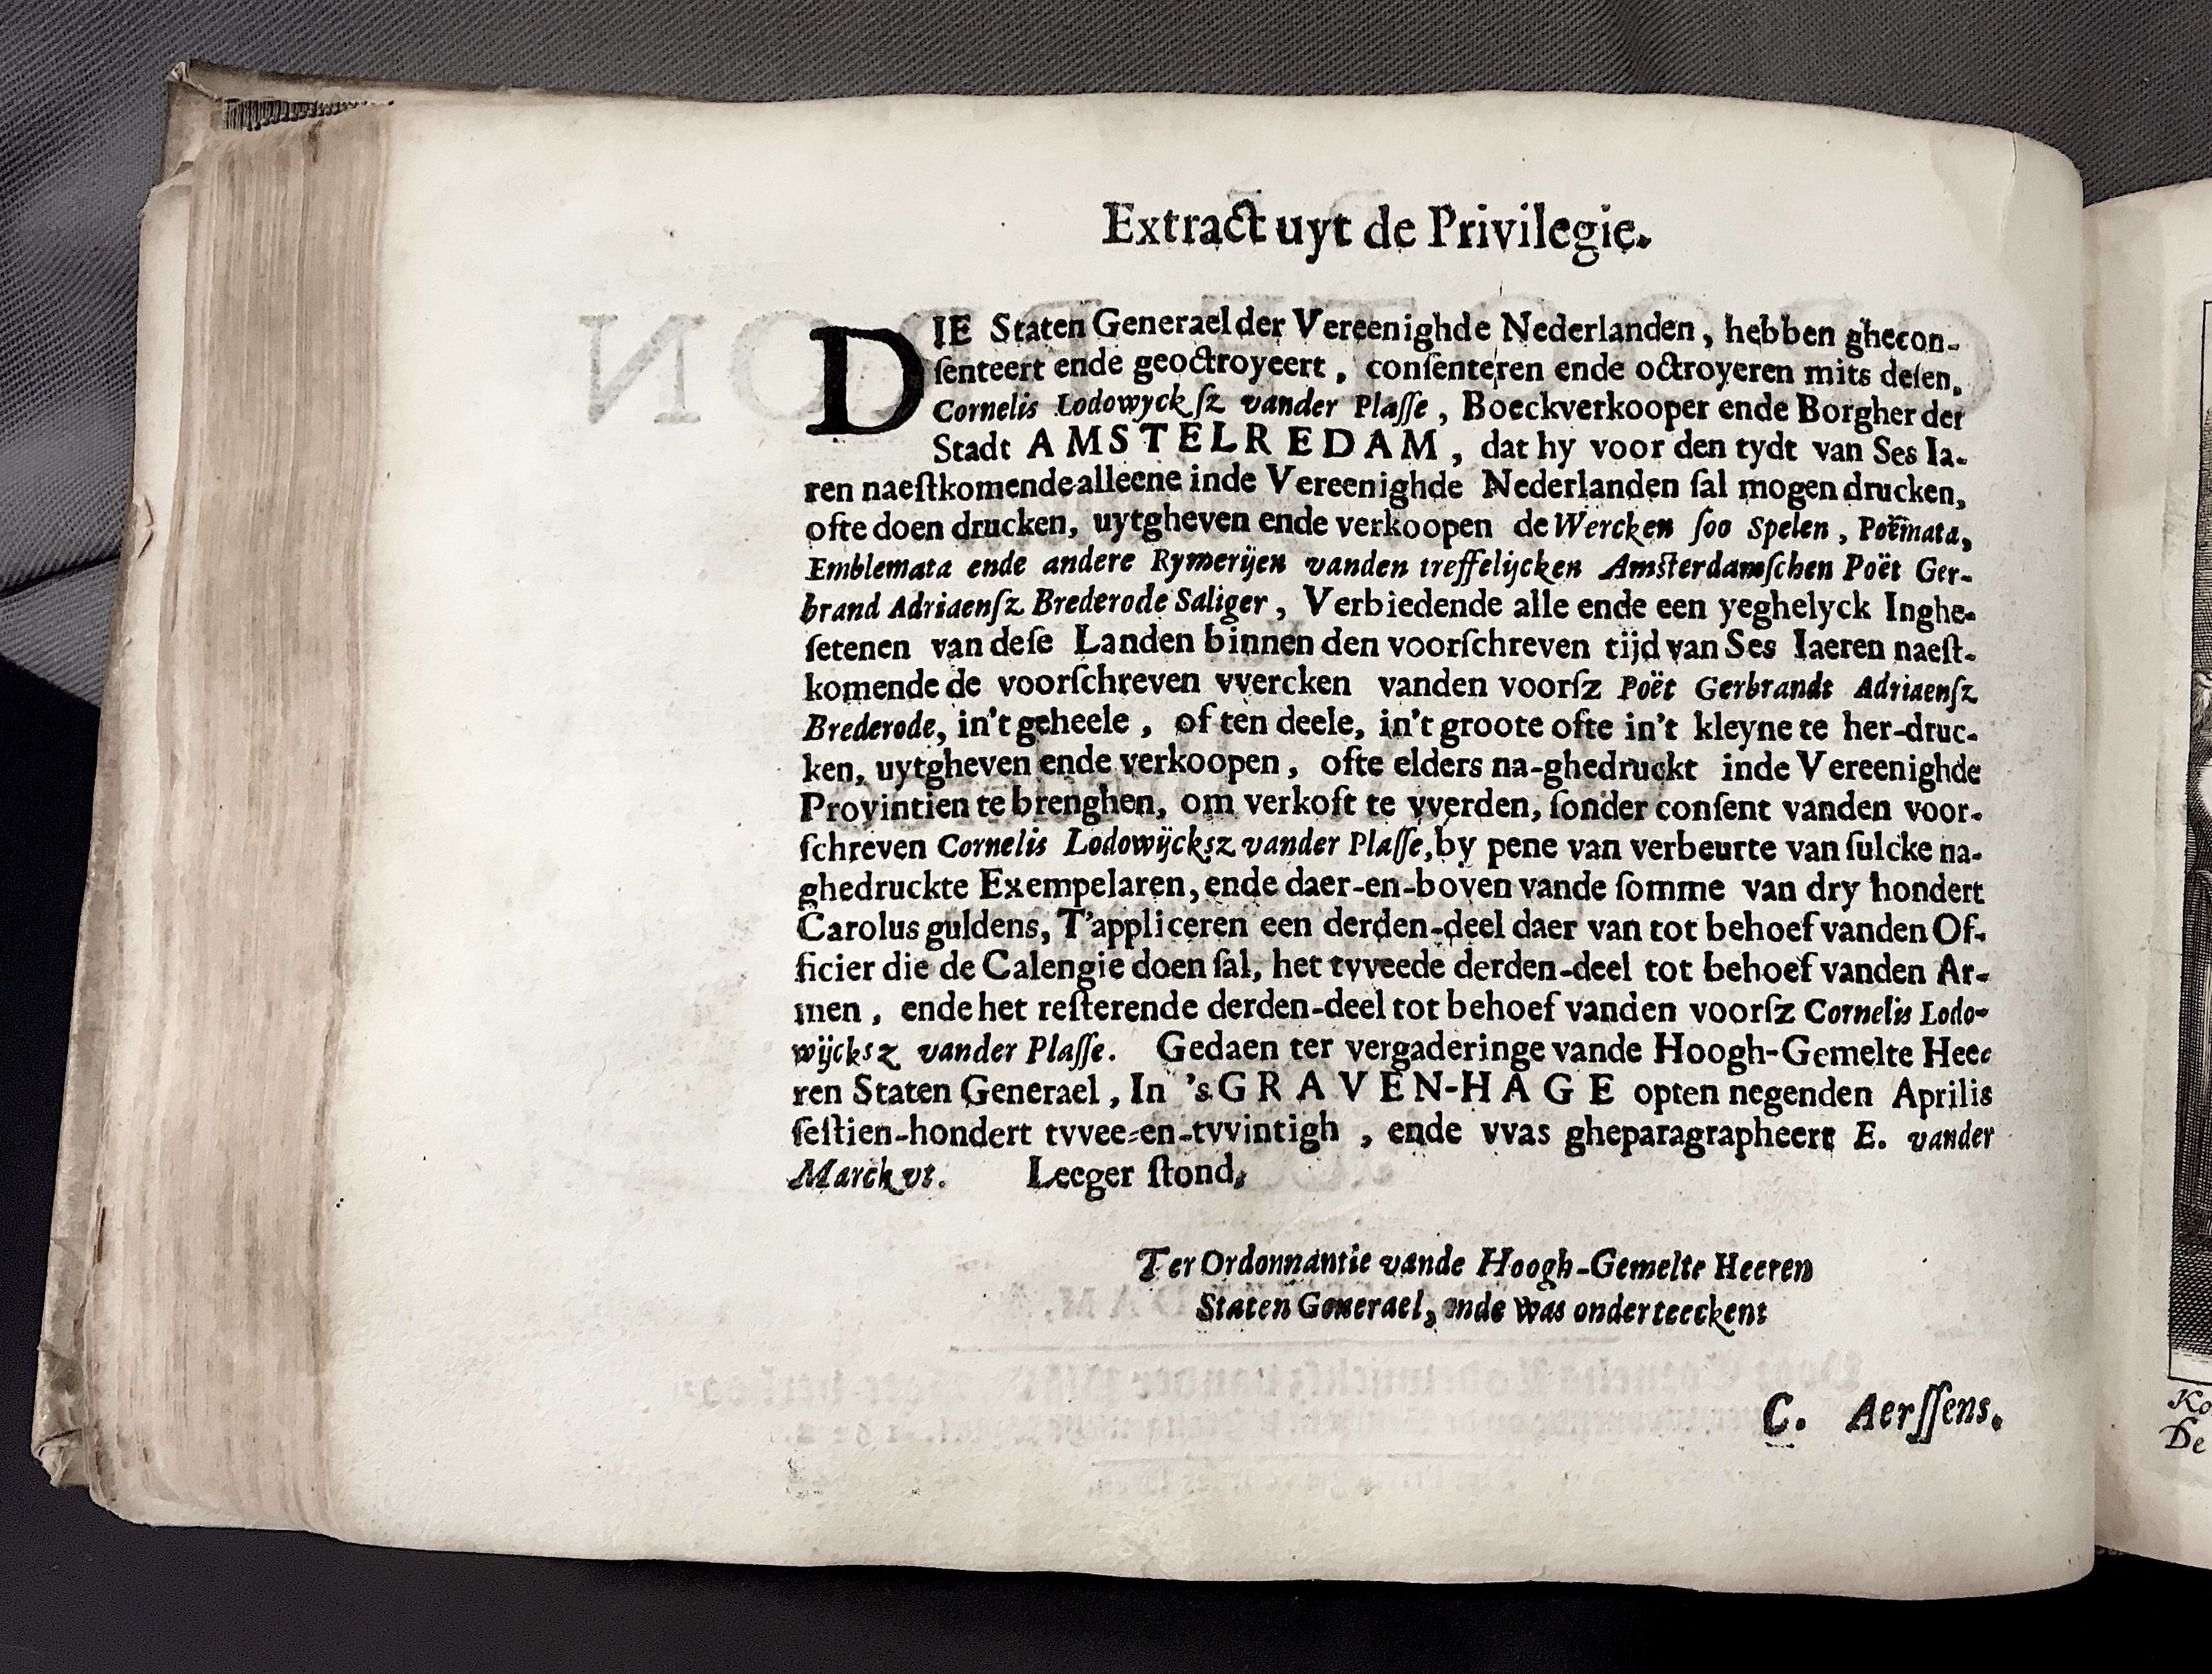 Extract uyt de Privilegie.
DIE Staten Generael der Vereenighde Nederlanden, hebben ghecon-
ſenteert ende geoctroyeert, conſenteren ende octroyeren mits deſen,
Cornelis Lodowyckſz vander Plaſſe, Boeckverkooper ende Borgher der
Stadt AMSTELREDAM, dat hy voor den tydt van Ses Ia-
ren naeſtkomende alleene inde Vereenighde Nederlanden ſal mogen drucken,
ofte doen drucken, uytgheven ende verkoopen de Wercken ſoo Spelen, Poëmata,
Emblemata ende andere Rymerijen vanden treffelijcken Amſterdamſchen Poët Ger-
brand Adriaenſz Brederode Saliger, Verbiedende alle ende een yeghelyck Inghe-
ſetenen van deſe Landen binnen den voorſchreven tijd van Ses Iaeren naeſt-
komende de voorſchreven vvercken vanden voorſz Poët Gerbrandt Adriaenſz
Brederode, in't geheele, of ten deele, in't groote ofte in't kleyne te her-druc-
ken, uytgheven ende verkoopen, ofte elders na-ghedruckt inde Vereenighde
Provintien te brenghen, om verkoft te vverden, ſonder conſent vanden voor-
ſchreven Cornelis Lodowijcksz vander Plaſſe, by pene van verbeurte van ſulcke na-
ghedruckte Exempelaren, ende daer-en-boven vande ſomme van dry hondert
Carolus guldens, T'appliceren een derden-deel daer van tot behoef vanden Of-
ficier die de Calengie doen ſal, het tvveede derden-deel tot behoef vanden Ar-
men, ende het reſterende derden-deel tot behoef vanden voorſz Cornelis Lodo-
wijcksz vander Plaſſe. Gedaen ter vergaderinge vande Hoogh-Gemelte Hee
ren Staten Generael, In 's GRAVEN-HAGE opten negenden Aprilis
ſeſtien-hondert tvvee-en-tvvintigh, ende vvas gheparagrapheert E. vander
Marck vt. Leeger ſtond,
Ter Ordonnantie vande Hoogh-Gemelte Heeren
Staten Generael, ende was onderteeckent
C. Aerſſens.
Ko
De